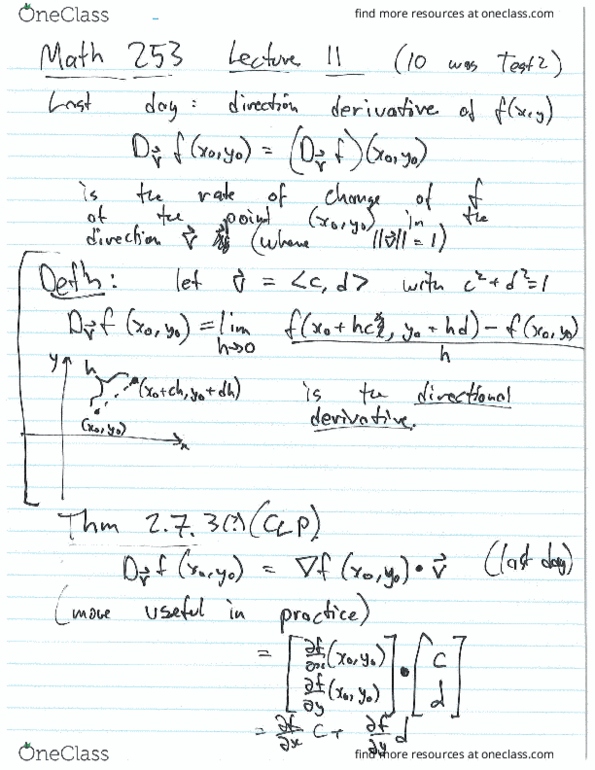 OneClass find more resources at oneclass.com
Math 253 Lecture 11 (10 was Test 2)
Last day: direction derivative of f(x,y)
D_v⃗ f(x₀,y₀) = (D_v⃗ f)(x₀,y₀)
is the rate of change of f
of the point (x₀,y₀) in the
direction v⃗ (where ||v⃗|| = 1)
Defn: let v⃗ = <c, d> with c²+d²=1
D_v⃗ f (x₀,y₀) = lim h→0 f(x₀+hc, y₀+hd) − f(x₀,y₀) / h
y h (x₀+ch, y₀+dh) is the directional
(x₀,y₀) x derivative.
Thm 2.7.3(?) (CLP)
D_v⃗ f (x₀,y₀) = ∇f (x₀,y₀) • v⃗ (last day)
(more useful in practice)
= [∂f/∂x (x₀,y₀) ∂f/∂y (x₀,y₀)] • [c d]
= ∂f/∂x c + ∂f/∂y d
OneClass find more resources at oneclass.com